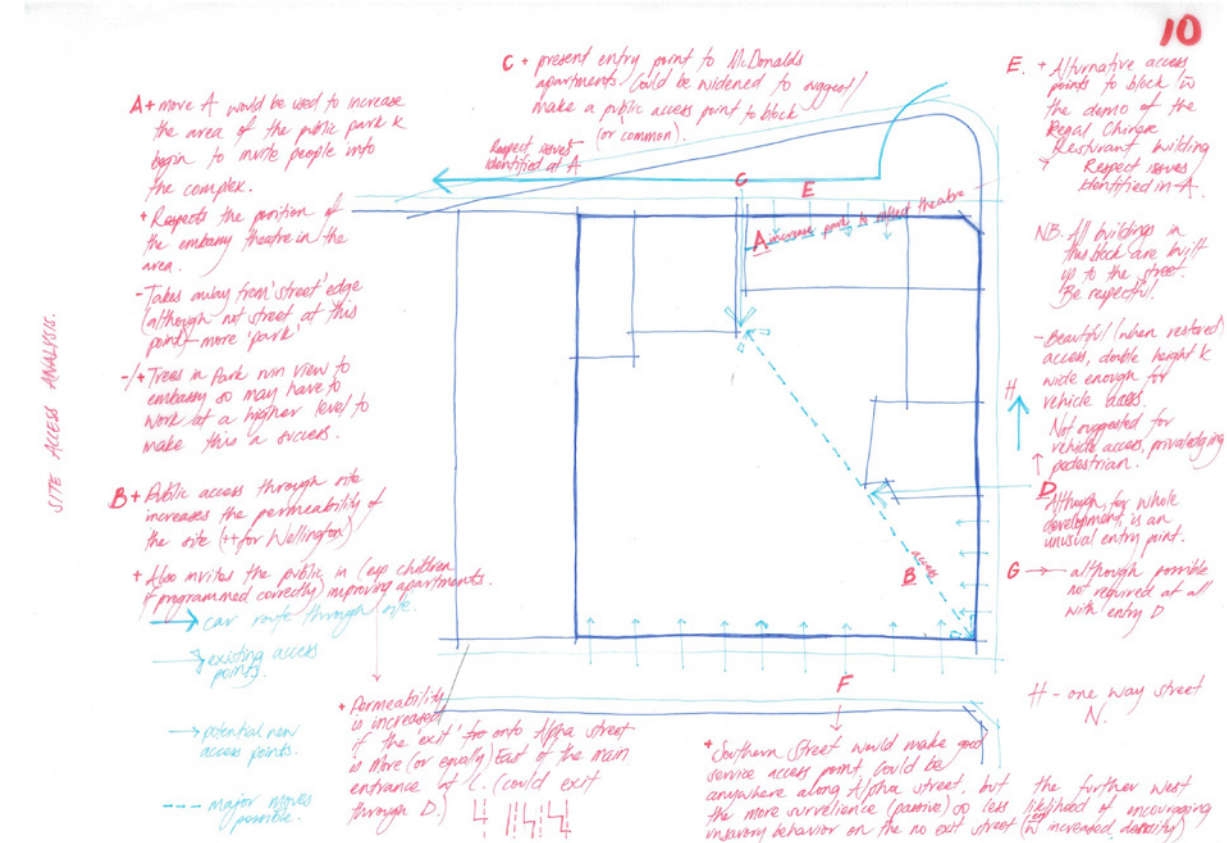 10
SITE ACCESS ANALYSIS.
A + move A would be used to increase
the area of the public park &
begin to invite people into
the complex.
+ Respects the position of
the embassy theatre in the
area.
- Takes away from 'street' edge
(although not street at this
point) - more 'park'
-/+ Trees in Park ruin view to
embassy so may have to
work at a higher level to
make this a success.
B + Public access through site
increases the permeability of
the site (++ for Wellington)
+ Also invites the public in (esp children
if programmed correctly) improving apartments.
car route through site.
existing access
points.
potential new
access points.
major moves
possible.
C + present entry point to McDonalds
apartments. Could be widened to suggest/
make a public access point to block
(or common).
Respect issues
identified at A
C
E
A increase park to reflect theatre
access
B
D
F
H
E. + Alternative access
points to block w̄
the demo of the
Regal Chinese
Resturant building
Respect issues
identified in A.
NB. All buildings in
this block are built
up to the street.
Be respectful.
- Beautiful (when restored)
access, double height &
wide enough for
vehicle access.
Not suggested for
vehicle access, priviledging
pedestrian.
Although, for whole
development, is an
unusual entry point.
G → although possible
not required at all
with entry D
H - one way street
N.
+ Permeability
is increased
if the 'exit' onto Alpha street
is more (or equally) East of the main
entrance at C. (could exit
through D.)
+ Southern Street would make good
service access point. Could be
anywhere along Alpha street, but the further west
the more survelience (passive) so less likelihood of encouraging
unsavory behavior on the no exit street (w̄ increased density)